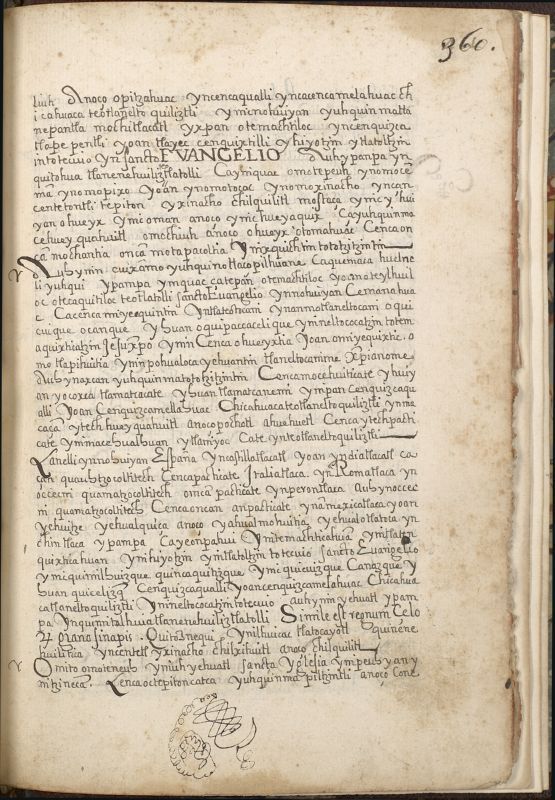 360.
liuh Anoço opitzahuac yncencaqualli yncacencamelahuac ch
icahuaca teotlanelto quiliztli ynicnohuiyan yuhquin matta
nepantla mochitlacatl yxpan otemachtiloc yncenquizca
tlape petli yoan tlayec cenquixtilli yhiyotzin ytlatoltzin
intotecuio yn sancto EVANGELIO auhypanpa yn
quitohua tlanenehuiliztlatolli Caynquac omotepeuh ynomoce
ma ynomopixo yoan ynomotocac ynomoxinacho yncan
centetontli tepiton yxinacho chilquilitl mostaça ynic y hui
yan ohueyx ynic oman anoço ynic hueyaquix Cayuhquinma
cehueyquahuitl omochiuh anoço ohueyx otomahuac Cenca on
can mochantia onca motapaçoltia ynixquichtin tototzitzintin
Auhynin cuixamo yuhqui notlaçopilhuane Caquemaca huelne
li yuhqui ypampa ynquac catepan otemachtiloc yoa moteylhuil
oc otecaquitiloc teotlatolli sancto Euangelio ynnohuiyan Cemanahua
c Cacenca miyequintin yntlateotocani ynanmotlaneltocani oqui
cuique ocanque yhuan oquipaccacelique ynineltococatzin totem
aquixtiatzin Jesuxpo ynin Cenca ohueyxtia yoan omiyequixti o
motlapihuitia yninpohualoca yehuantin tlaneltocanime xpianome
auhynaxcan yuhquinmatototzitzintin Cencamocehuiticate yhuiy
an yocoxca tlamatcacate yhuan tlamatcanemi ympan cenquizcaqu
alli yoan Cenquizcamellahuac Chicahuacateotlaneltoquiliztli ynma
caça ytech hueyquahuitl anoço pochotl ahuehuetl Cenca ytechpachti
cate ynimacehualhuan ytlaniyoc Cate ynteotlaneltoquiliztli
Canelli ynnohuiyan España yncastillatlacatl yoan yndiatlacatl ca
can quauhtzocoltitech Cencapachticate Italiatlaca yn Romatlaca yn
occecni quamatzocoltitech onca pachticate ynperontlaca auhynoccec
ni quamatzocoltitech Cencaoncan anpachticate ynamexicatlaca yoan
yehuitze yehualquiça anoço yahualmohuica yehualotlatoca yn
chintlaca ypampa Cayeonpahui ynitemachticahua ynitlaten
quixticahuan ynihiyotzin ynitlatoltzin totecuio sancto Euangelio
ynicquimilhuizque quincaquitizque ynic quicuizque Canazque y
huan quicelizq Cenquizcaqualli yoancenquizcamelahuac Chicahua
catlaneltoquiliztli ynineltococatzintotecuio auhynin yehuatl ypam
pa ynquinitalhuiatlanenehuiliztlatolli Simile est regnum Celo
24 grano sinapis. Quitoznequi ynilhuicac tlatocayotl quinene
huilitica yncentetl yxinacho chilxihuitl anoço chilquilitl
Omito omoteneuh yniuh yehuatl sancta yglesia ympeuhyany
nitzineca. Cenca octepitoncatca yuhquinma piltzintli anoço Cone